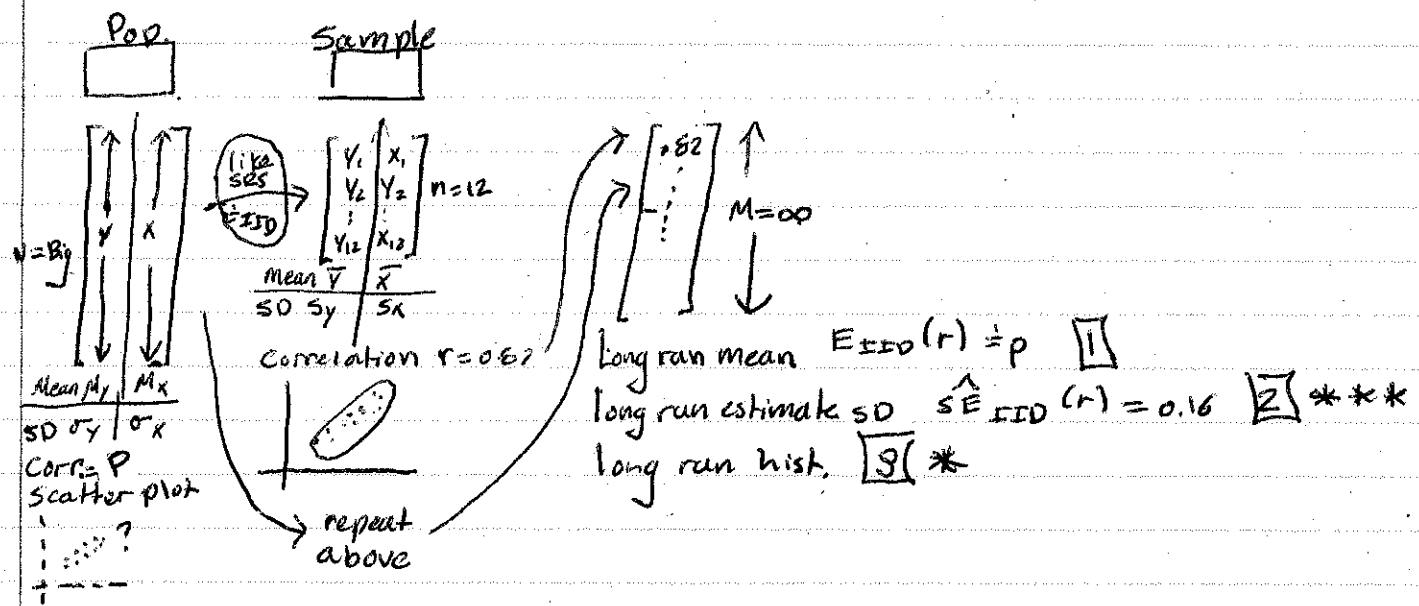 Pop.
Sample
like
SRS
≐IID
N = Big
y x
Y₁ X₁
Y₂ Y₂
⋮ ⋮
Y₁₂ X₁₂
n=12
Mean ȳ x̄
SD Sy Sx
Correlation r=0.82
.82
M=∞
Mean My Mx
SD σy σx
Corr.= P
Scatter plot
?
repeat
above
Long run mean E IID (r) ≐ p 1
long run estimate SD ŜE IID (r) = 0.16 2 ***
long run hist. 3 *